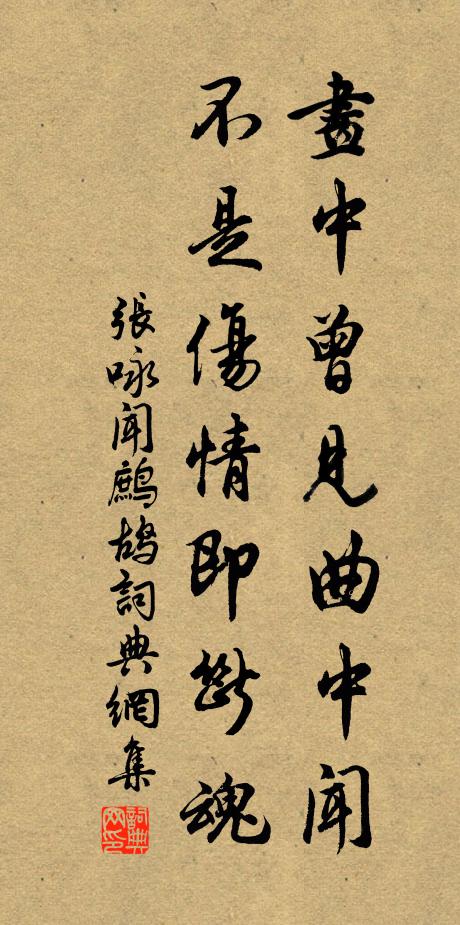 畫中曾見曲中聞
不是傷情即斷魂
張咏聞鷓鴣詞典網集
詞典
网印